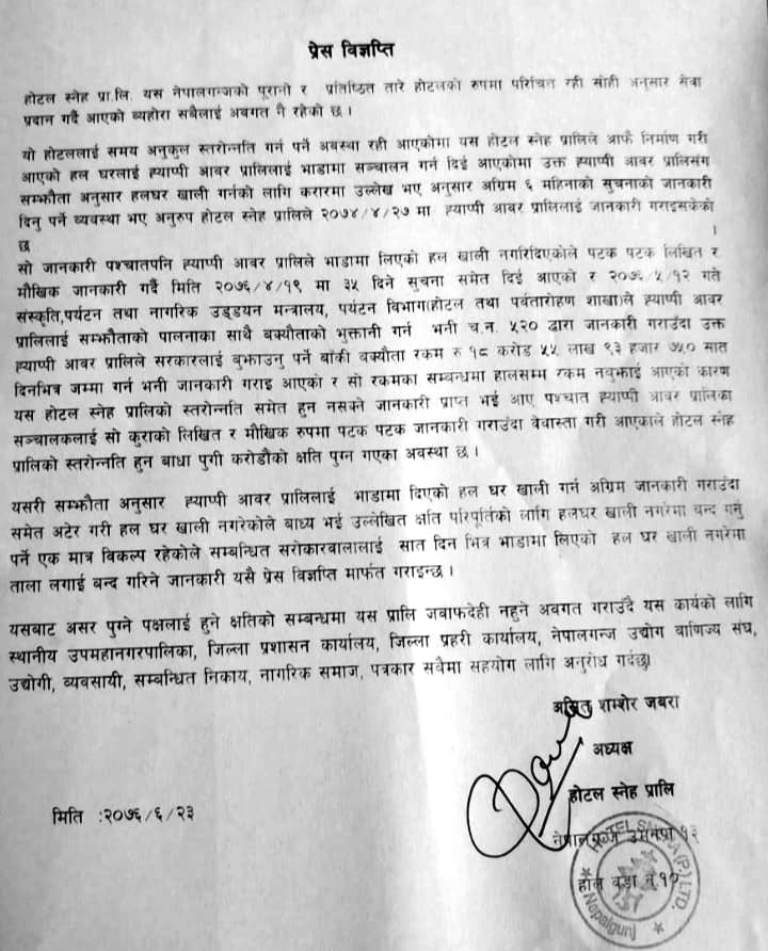 प्रेस विज्ञप्ति
होटल स्नेह प्रा.लि. यस नेपालगन्जको पूरानो र प्रतिष्ठित तारे होटलको रुपमा परिचित रही सोही अनुसार सेवा
प्रदान गर्दै आएको ब्यहोरा सबैलाई अवगत नै रहेको छ ।
यो होटललाई समय अनुकुल स्तरोन्नति गर्न पर्ने अवस्था रही आएकोमा यस होटल स्नेह प्रालिले आफै निर्माण गरी
आएको हल घरलाई ह्याप्पी आवर प्रालिलाई भाडामा सञ्चालन गर्न दिई आएकोमा उक्त ह्याप्पी आवर प्रालिसंग
सम्झौता अनुसार हलघर खाली गर्नको लागि करारमा उल्लेख भए अनुसार अग्रिम ६ महिनाको सुचनाको जानकारी
दिनु पर्ने ब्यवस्था भए अनुरुप होटल स्नेह प्रालिले २०७४/४/२७ मा ह्याप्पी आवर प्रालिलाई जानकारी गराइसकेको
छ ।
सो जानकारी पश्चातपनि ह्याप्पी आवर प्रालिले भाडामा लिएको हल खाली नगरिदिएकोले पटक पटक लिखित र
मौखिक जानकारी गर्दै मिति २०७६/४/१९ मा ३५ दिने सुचना समेत दिई आएको र २०७६/५/१२ गते
संस्कृति,पर्यटन तथा नागरिक उड्डयन मन्त्रालय, पर्यटन विभाग(होटल तथा पर्वतारोहण शाखा)ले ह्याप्पी आवर
प्रालिलाई सम्झौताको पालनाका साथै बक्यौताको भुक्तानी गर्न भनी च.न. ५२० द्वारा जानकारी गराउँदा उक्त
ह्याप्पी आवर प्रालिले सरकारलाई बुझाउनु पर्ने बाँकी बक्यौता रकम रु १८ करोड ५५ लाख ९३ हजार ७५० सात
दिनभित्र जम्मा गर्न भनी जानकारी गराइ आएको र सो रकमका सम्बन्धमा हालसम्भ रकम नबुझाई आएको कारण
यस होटल स्नेह प्रालिको स्तरोन्नति समेत हुन नसक्ने जानकारी प्राप्त भई आए पश्चात ह्याप्पी आवर प्रालिका
सञ्चालकलाई सो कुराको लिखित र मौखिक रुपमा पटक पटक जानकारी गराउँदा वेवास्ता गरी आएकाले होटल स्नेह
प्रालिको स्तरोन्नति हुन बाधा पुगी करोडौको क्षति पुग्न गएका अवस्था छ ।
यसरी सम्झौता अनुसार ह्याप्पी आवर प्रालिलाई भाडामा दिएको हल घर खाली गर्न अग्रिम जानकारी गराउँदा
समेत अटेर गरी हल घर खाली नगरेकोले बाध्य भई उल्लेखित क्षति परिपुर्तिको लागि हलघर खाली नगरेमा बन्द गर्नु
पर्ने एक मात्र विकल्प रहेकोले सम्बन्धित सरोकारवालालाई सात दिन भित्र भाडामा लिएको हल घर खाली नगरेमा
ताला लगाई बन्द गरिने जानकारी यसै प्रेस विज्ञप्ति मार्फत गराइन्छ ।
यसबाट असर पुग्ने पक्षलाई हुने क्षतिको सम्बन्धमा यस प्रालि जवाफदेही नहुने अवगत गराउँदै यस कार्यको लागि
स्थानीय उपमहानगरपालिका, जिल्ला प्रशासन कार्यालय, जिल्ला प्रहरी कार्यालय, नेपालगन्ज उद्योग वाणिज्य संघ,
उद्योगी, व्यवसायी, सम्बन्धित निकाय, नागरिक समाज, पत्रकार सबैमा सहयोग लागि अनुरोध गर्दछु।
अमित शम्शेर जबरा
अध्यक्ष
होटल स्नेह प्रालि
मिति :२०७६/६/२३
नेपालगन्ज उमनपा १३
हाल वडा नं.१०
HOTEL SNEHA (P.) LTD.
Nepalgunj